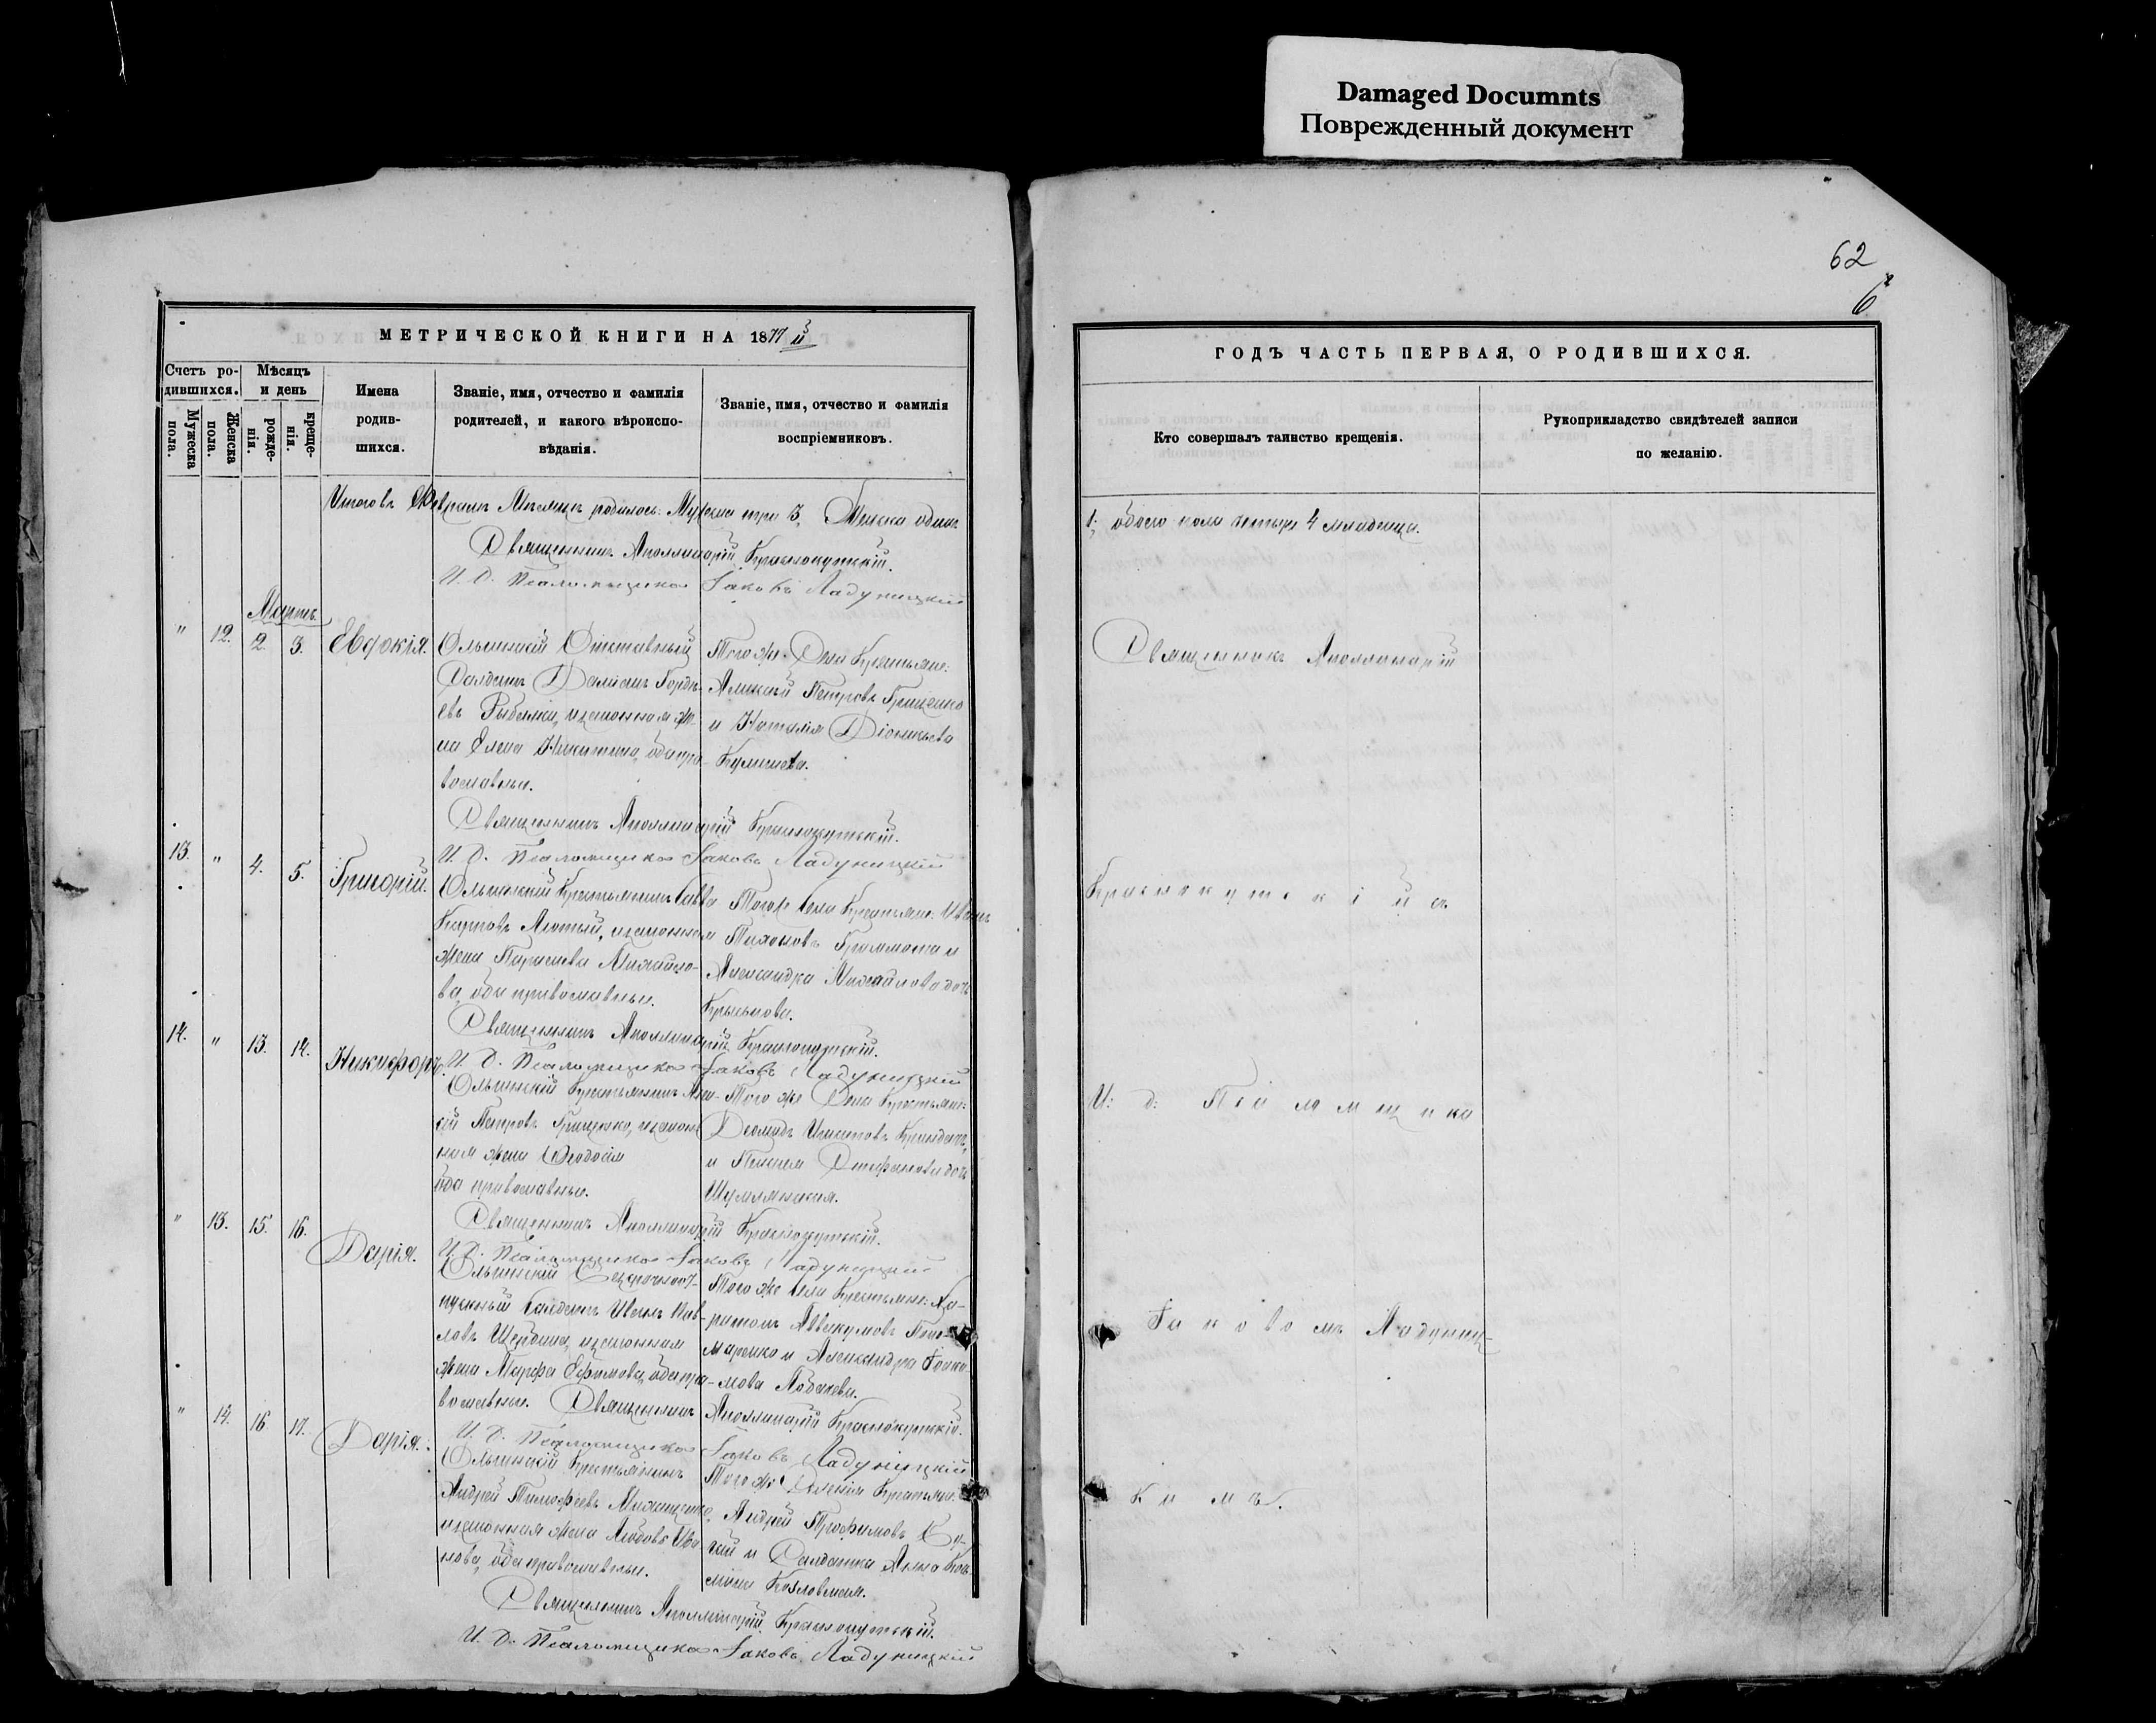 Damaged Documnts
Поврежденный документ
62
6
МЕТРИЧЕСКОЙ КНИГИ НА 1877й
Счетъ ро-
дившихся.
Мужеска пола.
Женска пола.
Мѣсяцъ
и день
рожде-
нія.
креще-
нія.
Имена
родив-
шихся.
Званіе, имя, отчество и фамилія
родителей, и какого вѣроиспо-
вѣданія.
Званіе, имя, отчество и фамилія
воспріемниковъ.
Февралѣ Мѣсяцѣ родилось: Мужска три 3, Женска одинъ
Священникъ Аполлинарій Краснокутскій.
И. д. Псаломщика Іаковъ Ладуницкій
Мартъ.
" 12. 2. 3. Евдокія.
Ольшанскій Отставный
Солдатъ Даміанъ Гордѣ-
евъ законная же-
на Елена Никитина, оба пра-
вославные.
Того же Села Крестьяне:
Алексѣй Петровъ Грищенко
и Наталія Діонисьева
Священникъ Аполлинарій Краснокутскій.
И. д. Псаломщика Іаковъ Ладуницкій
13. " 4. 5. Григорій.
Ольшанскій Крестьянинъ Савва
Карповъ Лютый, законная
жена Параскева Михайло-
ва, оба православные.
Того же Села Крестьяне: Иванъ
Тихоновъ и
Александра Михайлова дочь
Священникъ Аполлинарій Краснокутскій.
И. д. Псаломщика Іаковъ Ладуницкій
14. " 13. 14. Никифоръ.
Ольшанскій Крестьянинъ Алек-
сѣй Петровъ Грищенко, закон-
ная жена Ѳеодосія
оба православные.
Того же Села Крестьяне:
Діомидъ Игнатовъ
и Стефанова дочь
Шумлянская.
Священникъ Аполлинарій Краснокутскій.
И. д. Псаломщика Іаковъ Ладуницкій
" 13. 15. 16. Дарія.
Ольшанскій Безсрочноот-
пускный Солдатъ Иванъ Пав-
ловъ Щербина, законная
жена Марфа Ефимова, оба пра-
вославные.
Того же Села Крестьяне: Ха-
ритонъ Аввакумовъ
и Александра
Священникъ Аполлинарій Краснокутскій.
И. д. Псаломщика Іаковъ Ладуницкій
" 14. 16 17. Дарія.
Ольшанскій Крестьянинъ
Андрей Тимофѣевъ
законная жена Любовь Ива-
нова, оба православные.
Того же Селенія Крестьян.
Андрей Трофимовъ
и Солдатка Анна Кось-
мина Козловская.
Священникъ Аполлинарій Краснокутскій.
И. д. Псаломщика Іаковъ Ладуницкій
ГОДЪ ЧАСТЬ ПЕРВАЯ, О РОДИВШИХСЯ.
Кто совершалъ таинство крещенія.
Рукоприкладство свидѣтелей записи
по желанію.
1; обоего пола четыре 4 младенца.
Священникъ Аполлинарій
Краснокутскій съ
И: д: Псаломщика
Іаковомъ Ладуниц-
кимъ.